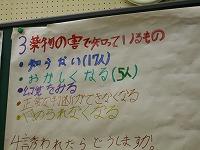 3 薬利の害で知っているもの
・知うだい(17人)
・おかしくなる(5人)
・幻覚をみる
・正常な判断ができなくなる
・やめられなくなる
4 誘われたらどうしますか。